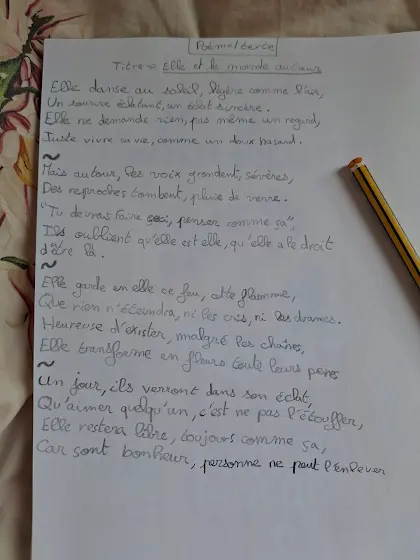 Poème/texte
Titre → Elle et le monde autour
Elle danse au soleil, légère comme l'air,
Un sourire éclatant, un éclat sincère.
Elle ne demande rien, pas même un regard,
Juste vivre sa vie, comme un doux hasard.
~
Mais autour, les voix grondent, sévères,
Des reproches tombent, pluie de verre.
"Tu devrais faire ceci, penser comme ça",
Ils oublient qu'elle est elle, qu'elle a le droit
d'être là.
~
Elle garde en elle ce feu, cette flamme,
Que rien n'éteindra, ni les cris, ni les drames.
Heureuse d'exister, malgré les chaînes,
Elle transforme en fleurs toute leurs peines
~
Un jour, ils verront dans son éclat,
Qu'aimer quelqu'un, c'est ne pas l'étouffer,
Elle restera libre, toujours comme ça,
Car sont bonheur, personne ne peut l'enlever